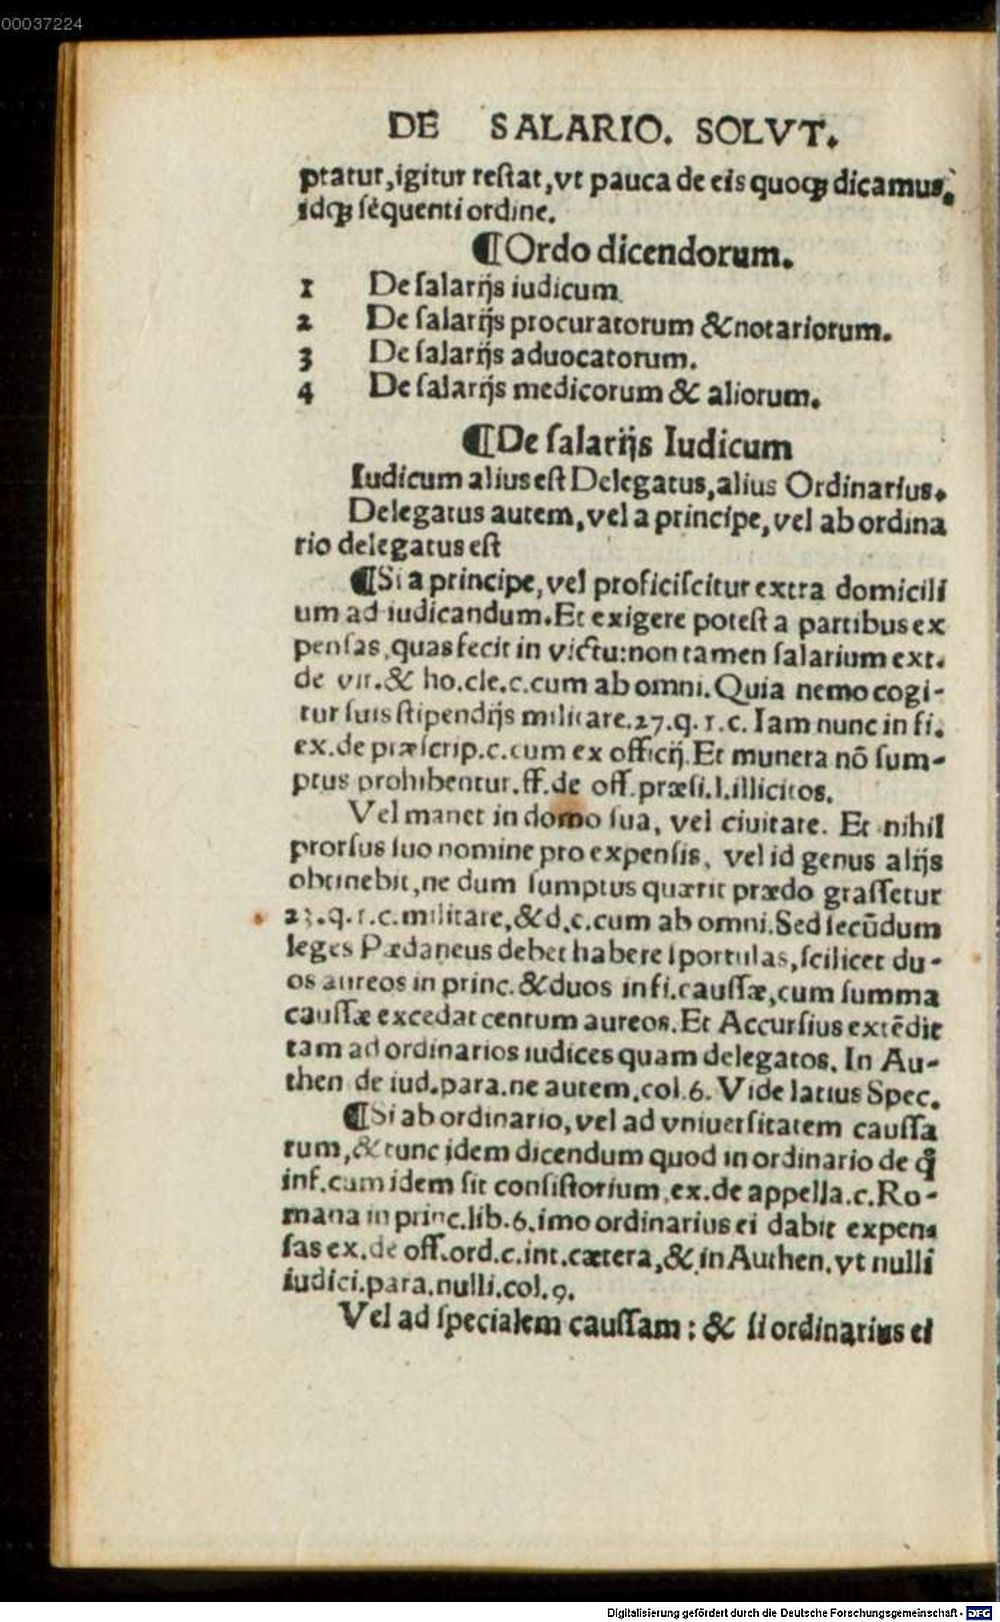 00037224
DE SALARIO. SOLVT.
ptatur, igitur restat, vt pauca de eis quoq; dicamus,
idq; sequenti ordine.
¶Ordo dicendorum.
1 De salarijs iudicum
2 De salarijs procuratorum & notariorum.
3 De salarijs aduocatorum.
4 De salarijs medicorum & aliorum.
¶De salarijs Iudicum
Iudicum alius est Delegatus, alius Ordinarius.
Delegatus autem, vel a principe, vel ab ordina
rio delegatus est
¶Si a principe, vel proficiscitur extra domicili
um ad iudicandum. Et exigere potest a partibus ex
pensas, quas fecit in victu: non tamen salarium ext.
de vit. & ho. cle. c. cum ab omni. Quia nemo cogi-
tur suis stipendijs militare. 27. q. 1. c. Iam nunc in fi.
ex. de præscrip. c. cum ex officij. Et munera nō sum-
ptus prohibentur. ff. de off. præsi. l. illicitos.
Vel manet in domo sua, vel ciuitate. Et nihil
prorsus suo nomine pro expensis, vel id genus alijs
obtinebit, ne dum sumptus quærit prædo grassetur
23. q. 1. c. militare, & d. c. cum ab omni. Sed secūdum
leges Pædaneus debet habere sportulas, scilicet du-
os aureos in princ. & duos in fi. caussæ, cum summa
caussæ excedat centum aureos. Et Accursius extēdit
tam ad ordinarios iudices quam delegatos. In Au-
then de iud. para. ne autem. col. 6. Vide latius Spec.
¶Si ab ordinario, vel ad vniuersitatem caussa
rum, & tunc idem dicendum quod in ordinario de q̄
inf. cum idem sit consistorium, ex. de appella. c. Ro-
mana in princ. lib. 6. imo ordinarius ei dabit expen-
sas ex. de off. ord. c. int. cætera, & in Authen. vt nulli
iudici. para. nulli. col. 9.
Vel ad specialem caussam: & si ordinarius ei
Digitalisierung gefördert durch die Deutsche Forschungsgemeinschaft - DFG